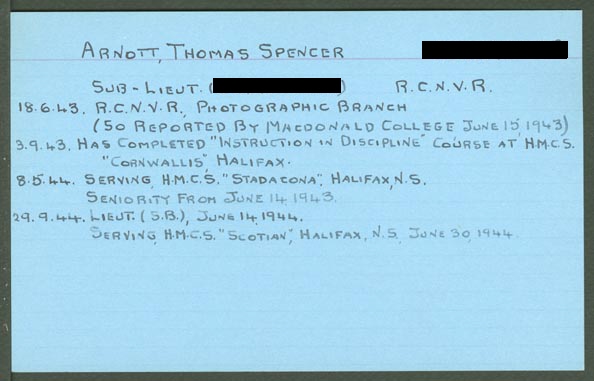 ARNOTT, THOMAS SPENCER
SUB-LIEUT. ( ) R.C.N.V.R.
18.6.43. R.C.N.V.R. PHOTOGRAPHIC BRANCH
(SO REPORTED BY MACDONALD COLLEGE JUNE 15, 1943)
3.9.43. HAS COMPLETED "INSTRUCTION IN DISCIPLINE" COURSE AT H.M.C.S.
"CORNWALLIS", HALIFAX.
8.5.44. SERVING, H.M.C.S. "STADACONA", HALIFAX, N.S.
SENIORITY FROM JUNE 14 1943.
29.9.44. LIEUT. (S.B.), JUNE 14, 1944.
SERVING, H.M.C.S. "SCOTIAN", HALIFAX, N.S. JUNE 30, 1944.